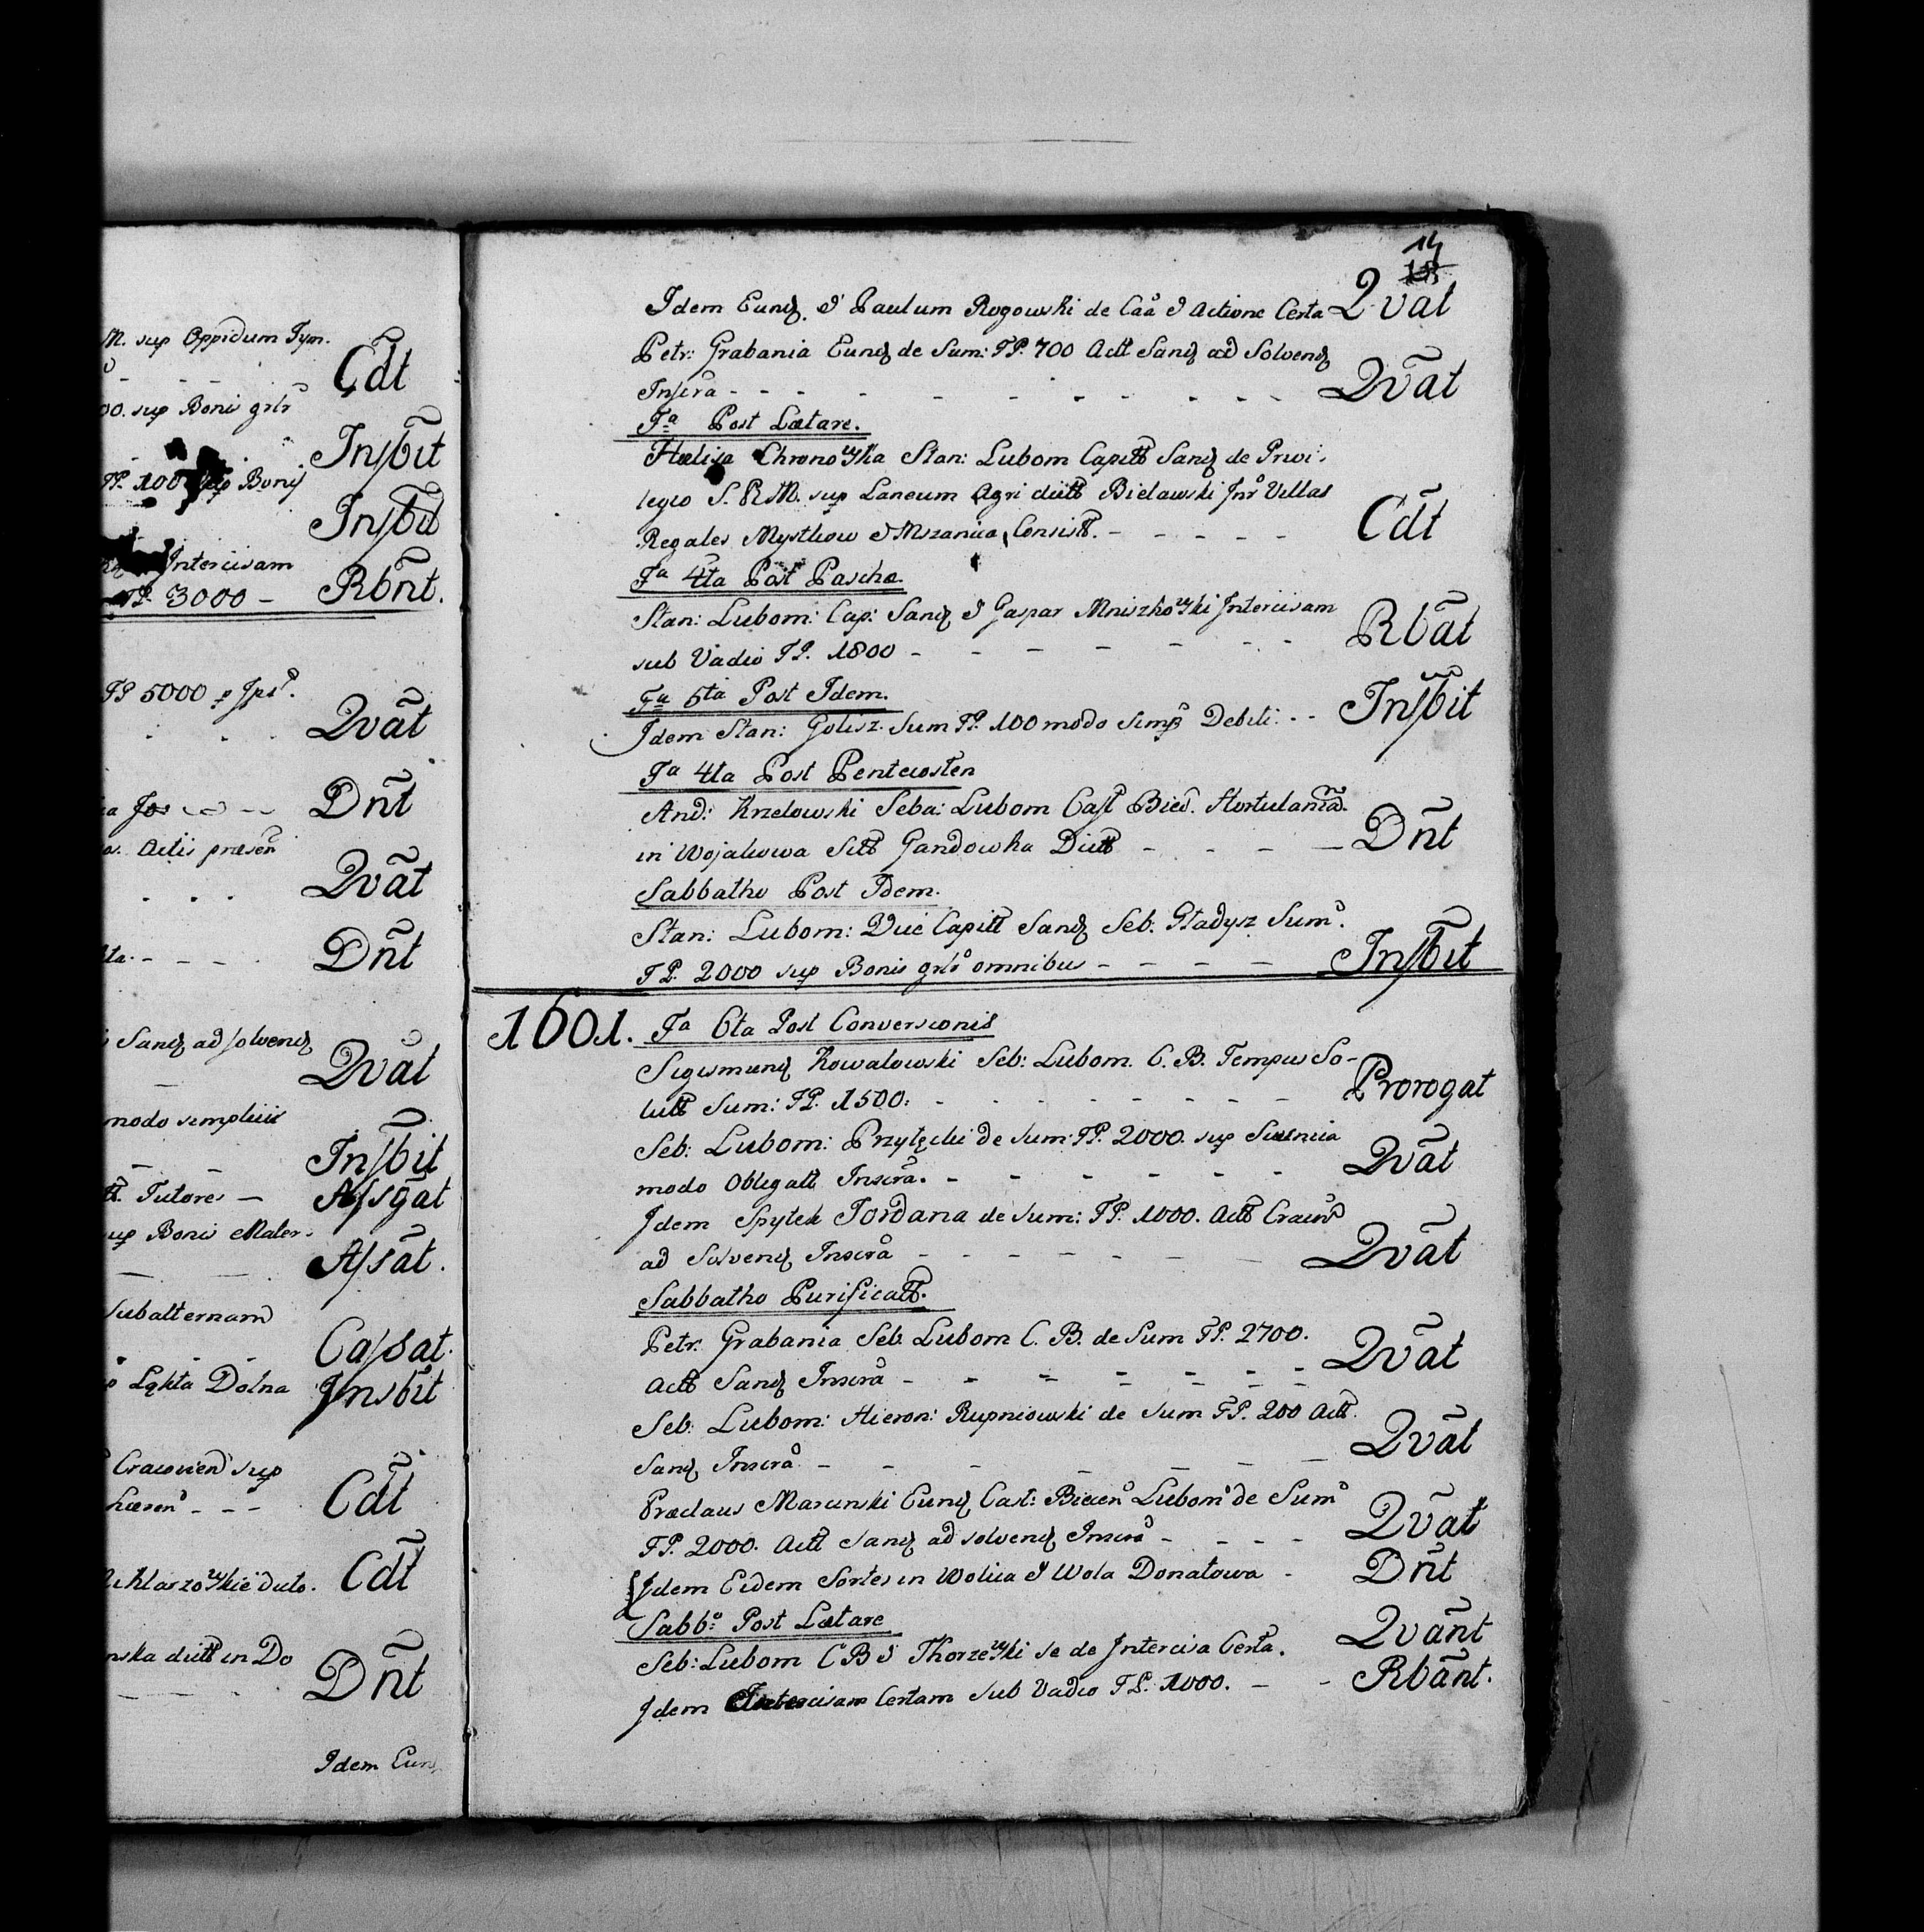 M. sup Oppidum Tym.
Cdt
00. sup Bonis grlr
Insbit
FP. 100 sup Bonis
Insbit
Intercisam
FP. 3000 - Rbnt.
FP 5000 p Ips.
Qvat
Dnt
Actis præsen
Qvat
Dnt
Sand ad solvend
Qvat
modo simpliiis
Insbit
Tutores - Assgat
sup Bonis Mater.
Assat.
Subalternam
Cassat.
Ląkta Dolna Insbit
Cracovien sup
hæren - - - Cdt
Cdt
nska dictt in Do
Dnt
Idem Eund
14
Idem Eund. & Paulum Rogowski de Caã & Actione Certa Qvat
Petr: Grabania Eund de Sum: FP. 700 Actt Sand ad Solvend
Inscra - - - Qvãt
Fa Post Lætare.
Hæliza Chronowska Stan: Lubom Capitt Sand de Privi-
legio S. R. M. sup Laneum Agri dictt Bielawski Inr Villas
Regales Mystkow & Mszanica Consistt. - - - Cdt
Fa 4ta Post Paschæ.
Stan: Lubom: Cap: Sand & Gaspar Mniszkowski Intercisam
sub Vadio FP. 1800 - - - Rbãt
Fa 6ta Post Idem.
Idem Stan: Golisz. Sum FP. 100 modo Simp Debiti. - - Insbit
Fa 4ta Post Pentecosten
And: Krzelowski Seba: Lubom Cast Bied. Hortulaniã.
in Wojakowa Sitt Gandowka Dictt - - - Dñt
Sabbatho Post Idem.
Stan: Lubom: Duc Capitt Sand Seb. Gładysz Sum.
FP. 2000 sup Bonis grlr omnibus - - - Insbit
1601. Fa 6ta Post Conversionis
Sigismund Kowalowski Seb: Lubom. C. B. Tempus So-
lutt Sum: FP. 1500. - - - Prorogat
Seb: Lubom: Przyłęcki de Sum: FP. 2000. sup
modo Obligatt Inscra. - - - Qvãt
Idem Spytek Jordana de Sum: FP. 1000. Actt Cracov
ad Solvend Inscra - - - Qvãt
Sabbatho Purificatt.
Petr. Grabania Seb. Lubom C. B. de Sum FP. 2700.
Actt Sand Inscra - - - Qvãt
Seb: Lubom: Hieron: Rupniowski de Sum FP. 200 Actt.
Sand Inscra. - - - Qvãt
Præclaus Marcinski Eund Cast: Biecen Lubom de Sum
FP. 2000. Actt Sand ad solvend Inscra - - - Qvãt
Idem Eidem Sortes in Wolica & Wola Donatowa - Dñt
Sabbo Post Lætare
Seb: Lubom C B & Thorzewski se de Intercisa Certa. Qvãnt
Idem Intercisam Certam Sub Vadio FP. 1000. - - Rbãnt.